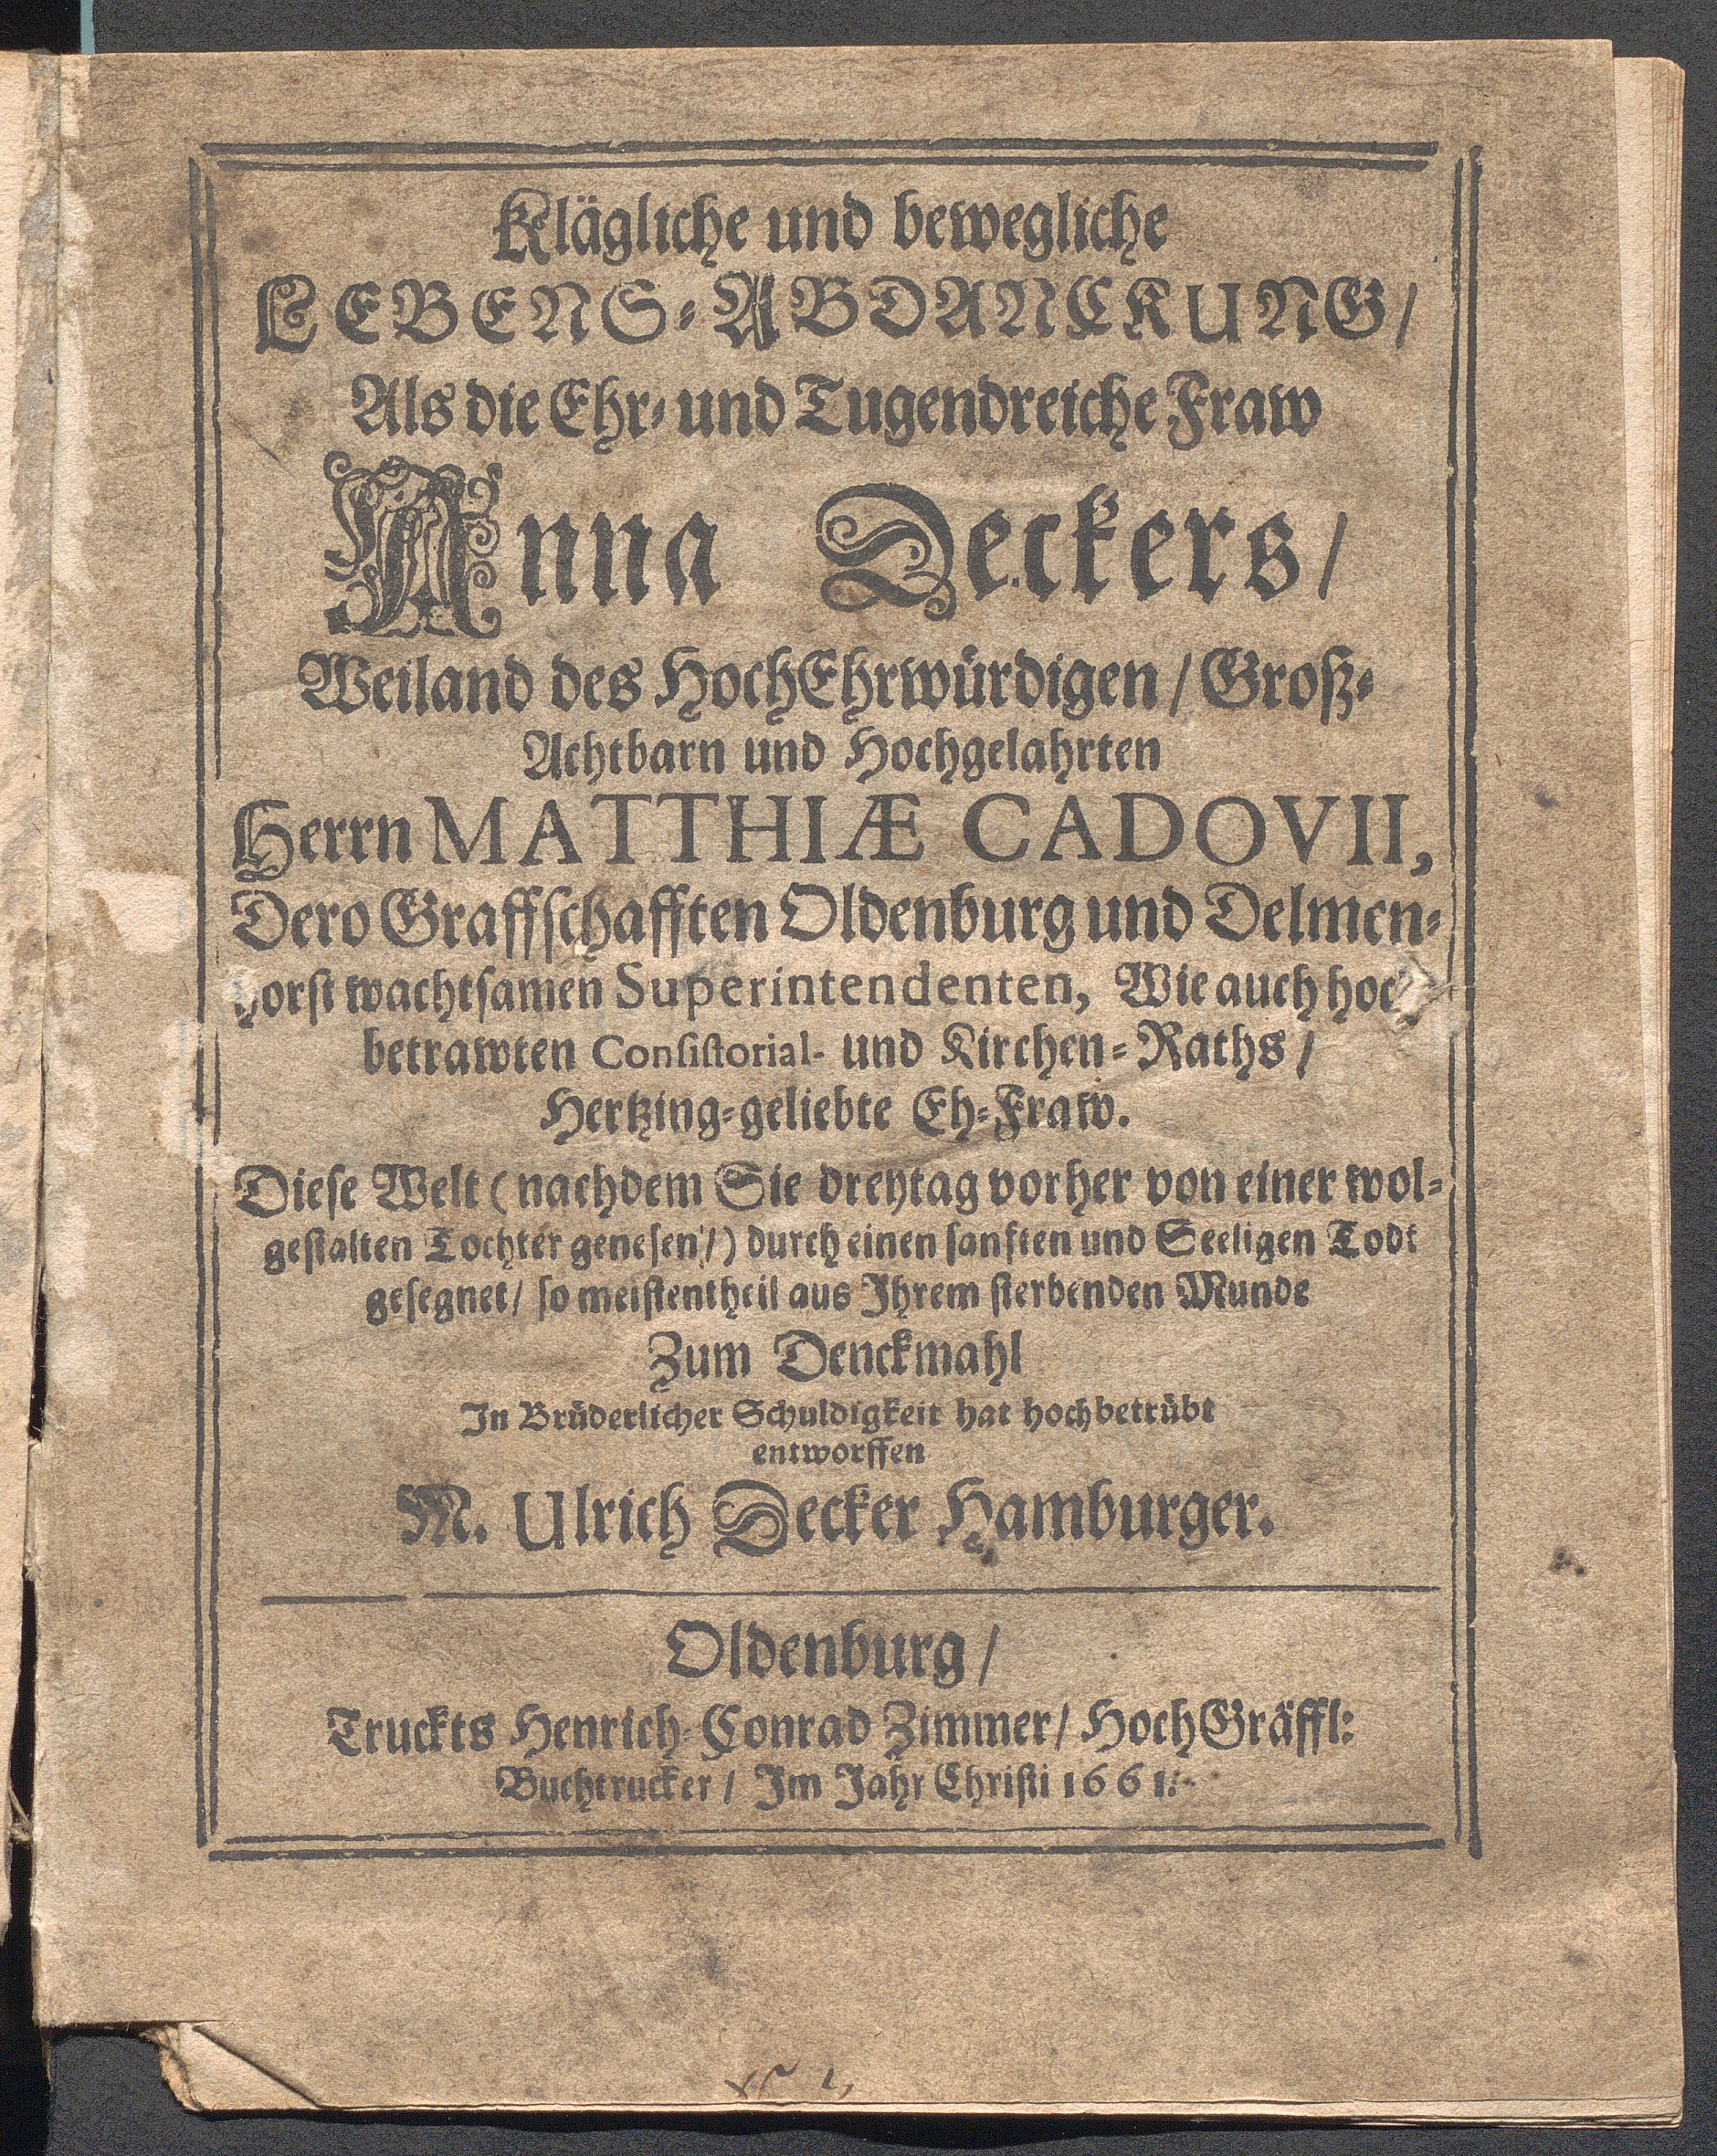 Klägliche und bewegliche
LEBENS-ABDANCKUNG/
Als die Ehr- und Tugendreiche Fraw
Anna Deckers/
Weiland des HochEhrwürdigen/ Groß-
Achtbarn und Hochgelahrten
Herrn MATTHIÆ CADOVII,
Dero Graffschafften Oldenburg und Delmen-
horst wachtsamen Superintendenten, Wie auch hoch
betrawten Consistorial- und Kirchen-Raths/
Hertzing-geliebte Eh-Fraw.
Diese Welt (nachdem Sie dreytag vorher von einer wol-
gestalten Tochter genesen/) durch einen sanften und Seeligen Todt
gesegnet/ so meistentheil aus Ihrem sterbenden Munde
Zum Denckmahl
In Brüderlicher Schuldigkeit hat hochbetrübt
entworffen
M. Ulrich Decker Hamburger.
Oldenburg/
Truckts Henrich-Conrad Zimmer/ HochGräffl:
Buchtrucker/ Im Jahr Christi 1661.